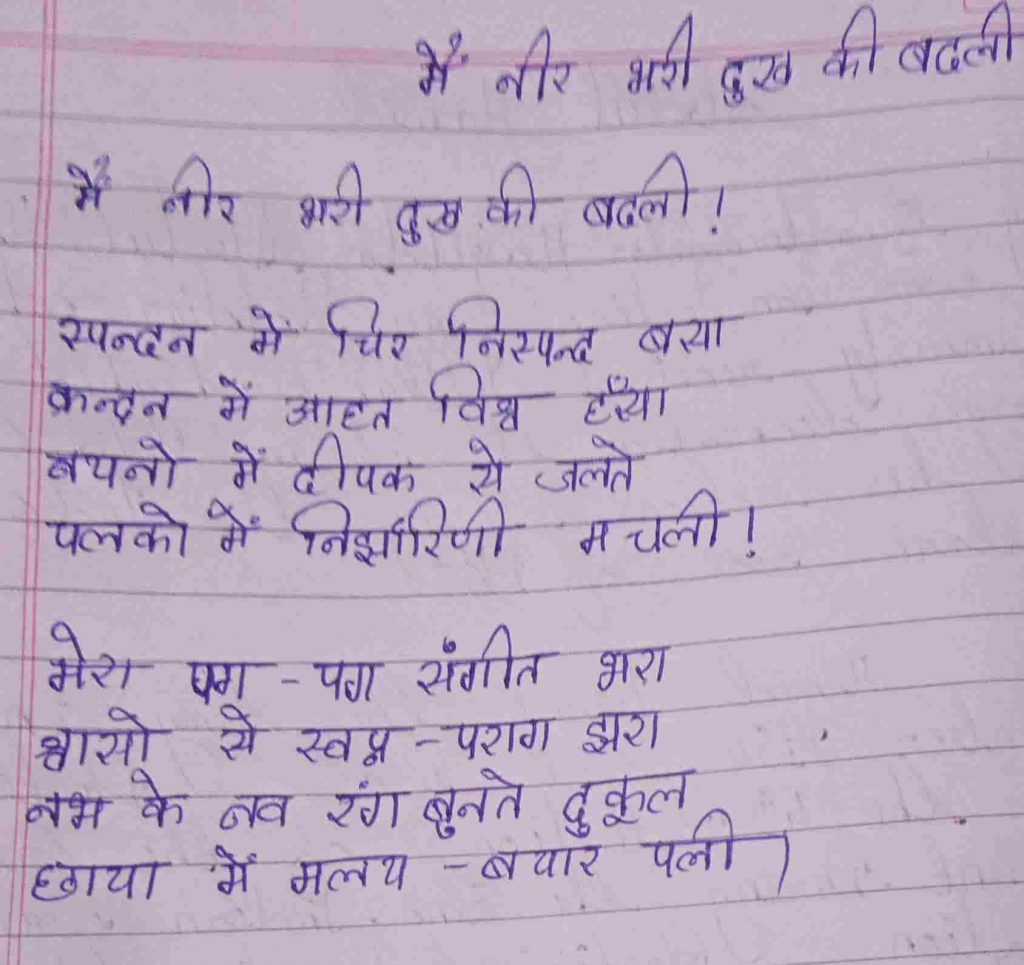 मैं नीर भरी दुख की बदली
मैं नीर भरी दुख की बदली!
स्पन्दन में चिर निस्पन्द बसा
क्रन्दन में आहत विश्व हँसा
नयनो में दीपक से जलते
पलको में निर्झारिणी मचली!
मेरा पग-पग संगीत भरा
श्वासो से स्वप्न-पराग झरा
नभ के नव रंग बुनते दुकूल
छाया में मलय-बयार पली)